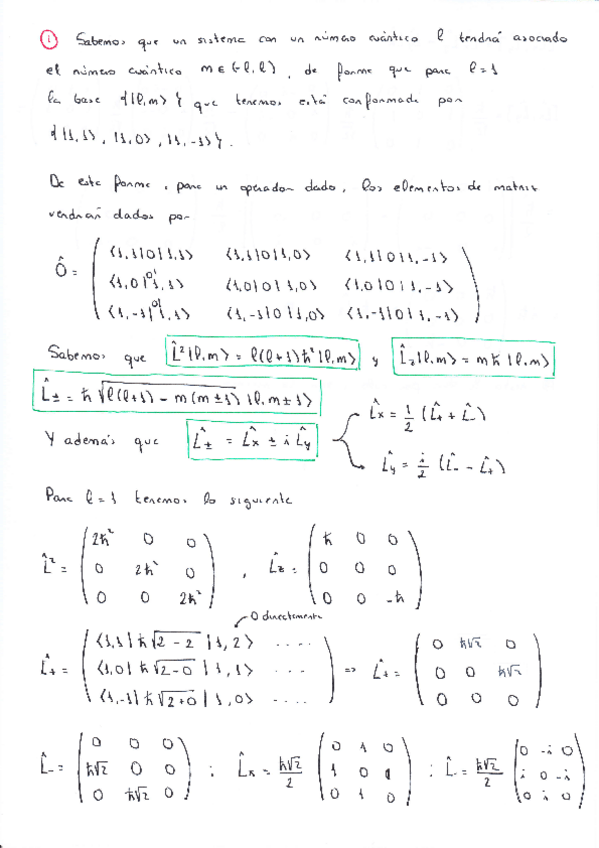 ① Sabemos que un sistema con un número cuántico l tendrá asociado
el número cuántico m ∈ (-l, l), de forma que para l = 1
la base {|l,m>} que tenemos está conformada por
{|1,1>, |1,0>, |1,-1>}.
De esta forma, para un operador dado, los elementos de matriz
vendrán dados por
Ô = ( <1,1|O|1,1> <1,1|O|1,0> <1,1|O|1,-1>
<1,0|O|1,1> <1,0|O|1,0> <1,0|O|1,-1>
<1,-1|O|1,1> <1,-1|O|1,0> <1,-1|O|1,-1> )
Sabemos que L̂²|l,m> = l(l+1)ħ²|l,m> y L̂z|l,m> = mħ|l,m>
L̂± = ħ √(l(l+1) - m(m±1)) |l,m±1>
Y además que L̂± = L̂x ± i L̂y
L̂x = 1/2 (L̂+ + L̂-)
L̂y = i/2 (L̂- - L̂+)
Para l = 1 tenemos lo siguiente
L̂² = ( 2ħ² 0 0
0 2ħ² 0
0 0 2ħ² )
, L̂z = ( ħ 0 0
0 0 0
0 0 -ħ )
0 directamente
L̂+ = ( <1,1|ħ√(2-2)|1,2> ....
<1,0|ħ√(2-0)|1,1> ...
<1,-1|ħ√(2+0)|1,0> .... )
=> L̂+ = ( 0 ħ√2 0
0 0 ħ√2
0 0 0 )
L̂- = ( 0 0 0
ħ√2 0 0
0 ħ√2 0 )
; L̂x = ħ√2/2 ( 0 1 0
1 0 1
0 1 0 )
; L̂- = ħ√2/2 ( 0 -i 0
i 0 -i
0 i 0 )